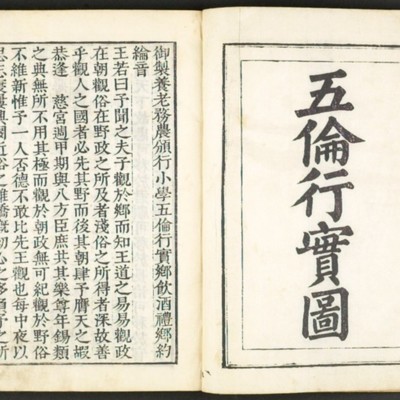 五倫行實圖
御製養老務農頒行小學五倫行實鄉飲酒禮鄉約
綸音
王若曰予聞之夫子觀於鄉而知王道之易易觀政
在朝觀俗在野政之所及者淺俗之所得者深故善
乎觀人之國者必先其野而後其朝肆予膺天之嘏
恭逢 慈宮週甲期與八方臣庶共其樂尊年錫類
之典無所不用其極而觀於朝政無可紀觀於野俗
不維新惟予一人否德不敢比先王觀也每中夜以